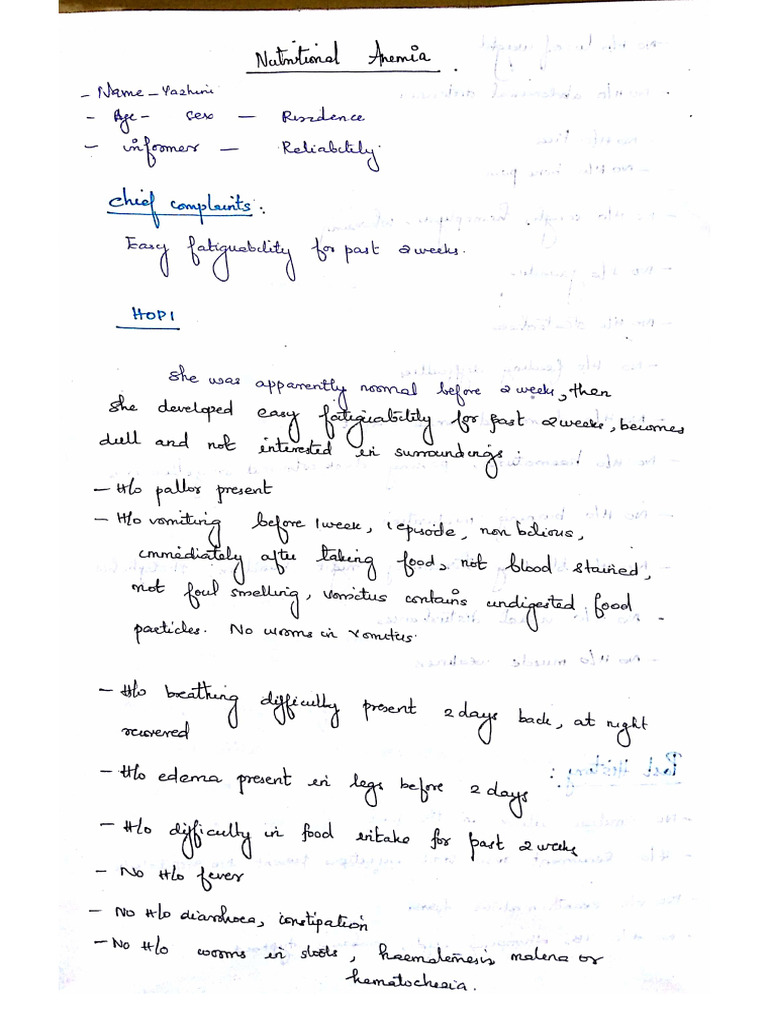 Nutritional Anemia
- Name - Yazhini
- Age - Sex - Residence
- informer - Reliability
Chief complaints:
Easy fatiguability for past 2 weeks.
HOPI
She was apparently normal before 2 week, then
She developed easy fatiguability for past 2 weeks, becomes
dull and not interested in surroundings:
- H/o pallor present
- H/o vomiting before 1 week, 1 episode, non bilious,
immediately after taking food, not blood stained,
not foul smelling, vomitus contains undigested food
particles. No worms in vomitus.
- H/o breathing difficulty present 2 days back, at night
recovered
- H/o edema present in legs before 2 days
- H/o difficulty in food intake for past 2 weeks
- No H/o fever
- No H/o diarrhoea, constipation
- No H/o worms in stools, haematemesis, malena or
hematochezia.